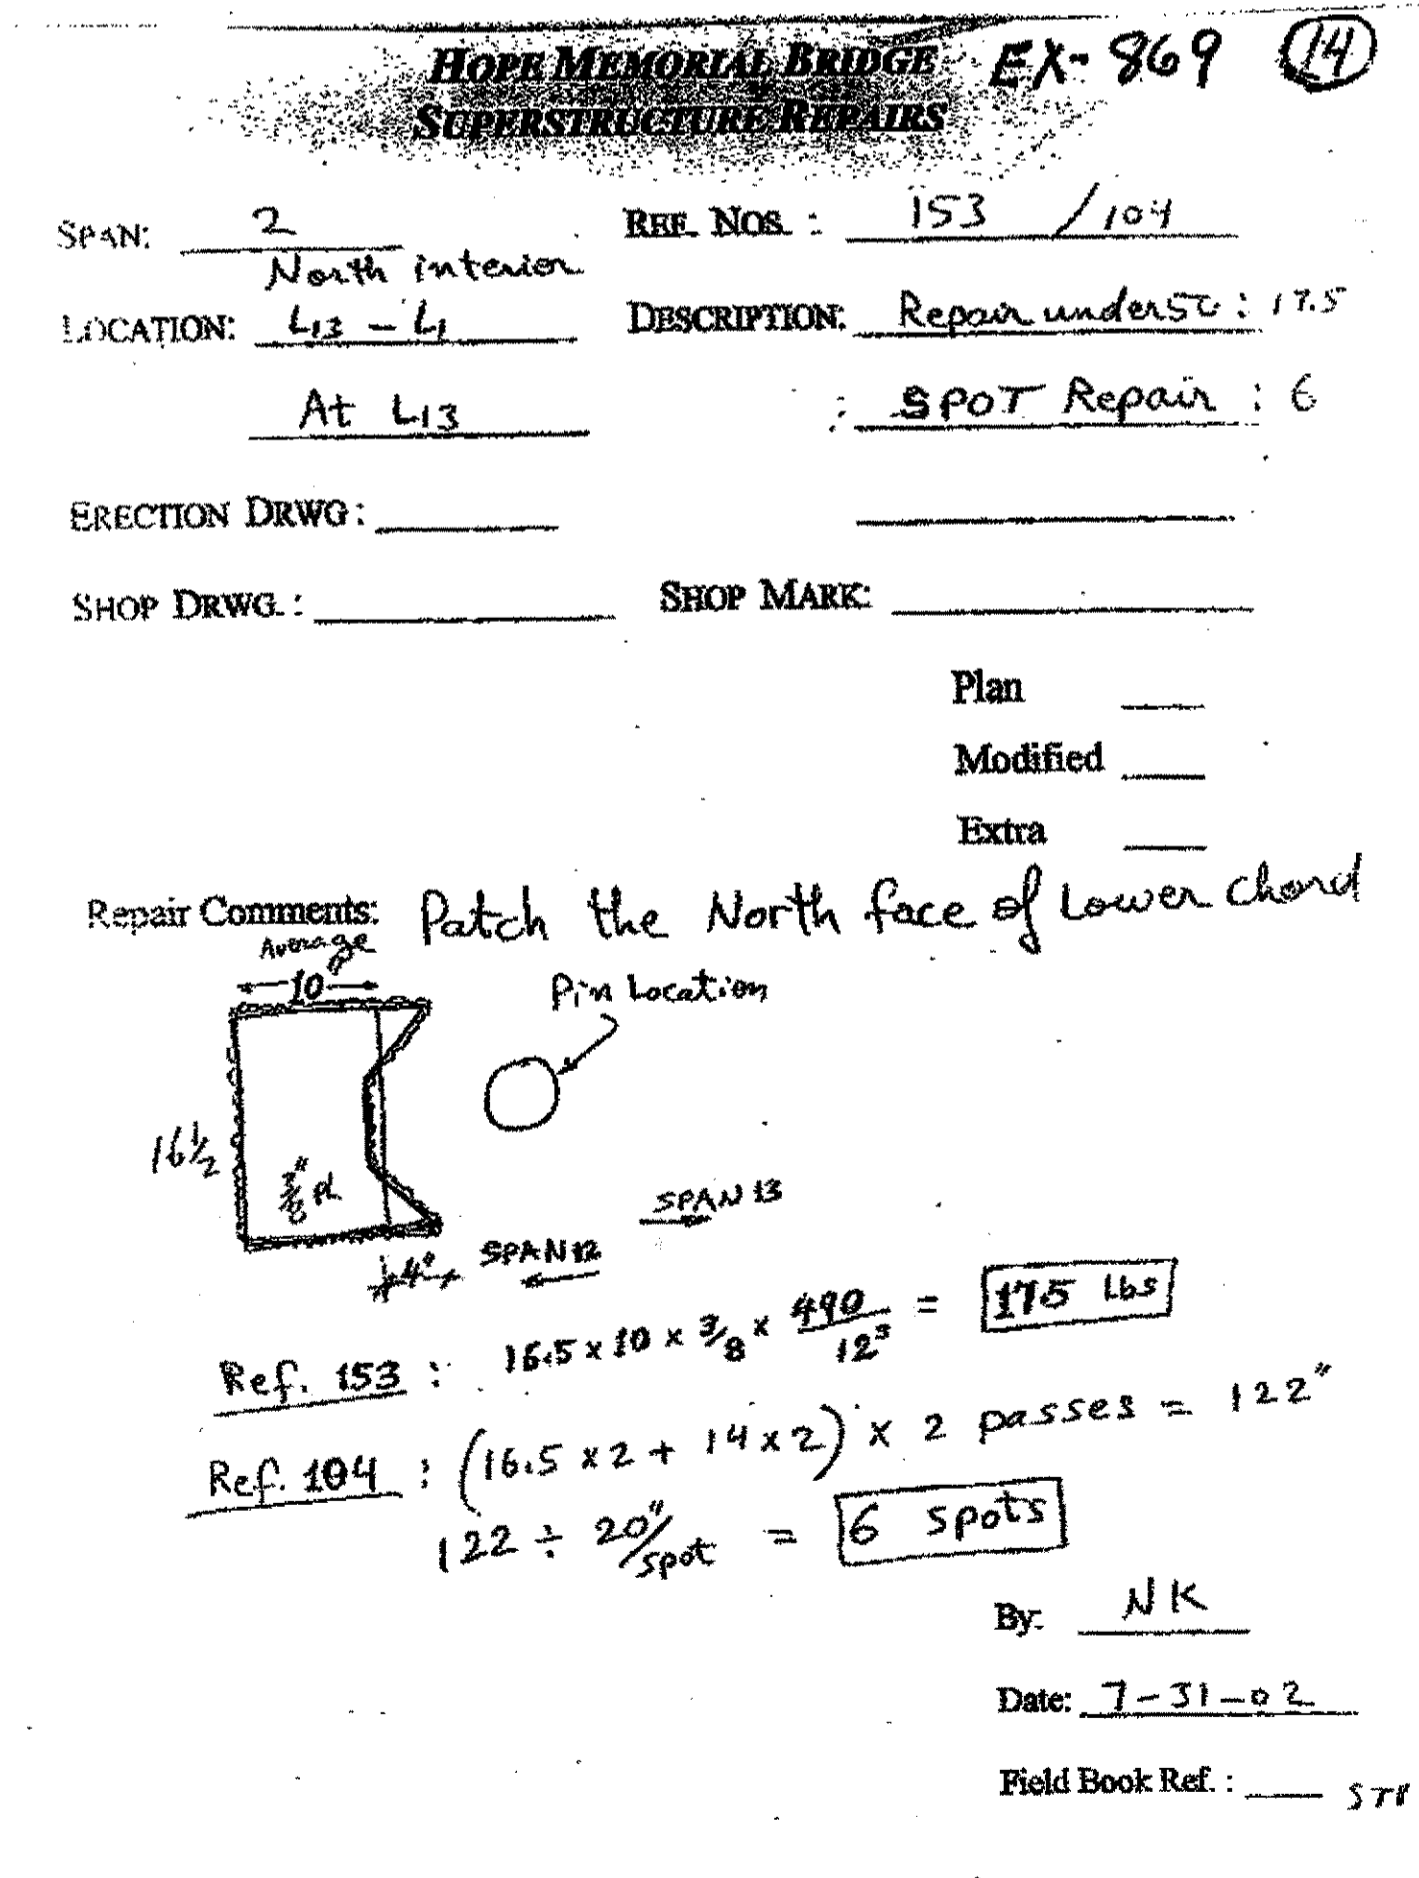 HOPE MEMORIAL BRIDGE EX-869 14
SUPERSTRUCTURE REPAIRS
SPAN: 2 REF. NOS. : 153 / 104
North interior
LOCATION: L13 - L1 DESCRIPTION: Repair under50 : 17.5
At L13 : SPOT Repair : 6
ERECTION DRWG :
SHOP DRWG. : SHOP MARK:
Plan
Modified
Extra
Repair Comments: Patch the North face of Lower chord
Average
10"
Pin Location
16 1/2
3/8" pl
SPAN 13
4"
SPAN 12
Ref. 153 : 16.5 x 10 x 3/8 x 490/12³ = 175 Lbs
Ref. 104 : (16.5 x 2 + 14 x 2) x 2 passes = 122"
122 ÷ 20"/spot = 6 spots
By: NK
Date: 7-31-02
Field Book Ref. :